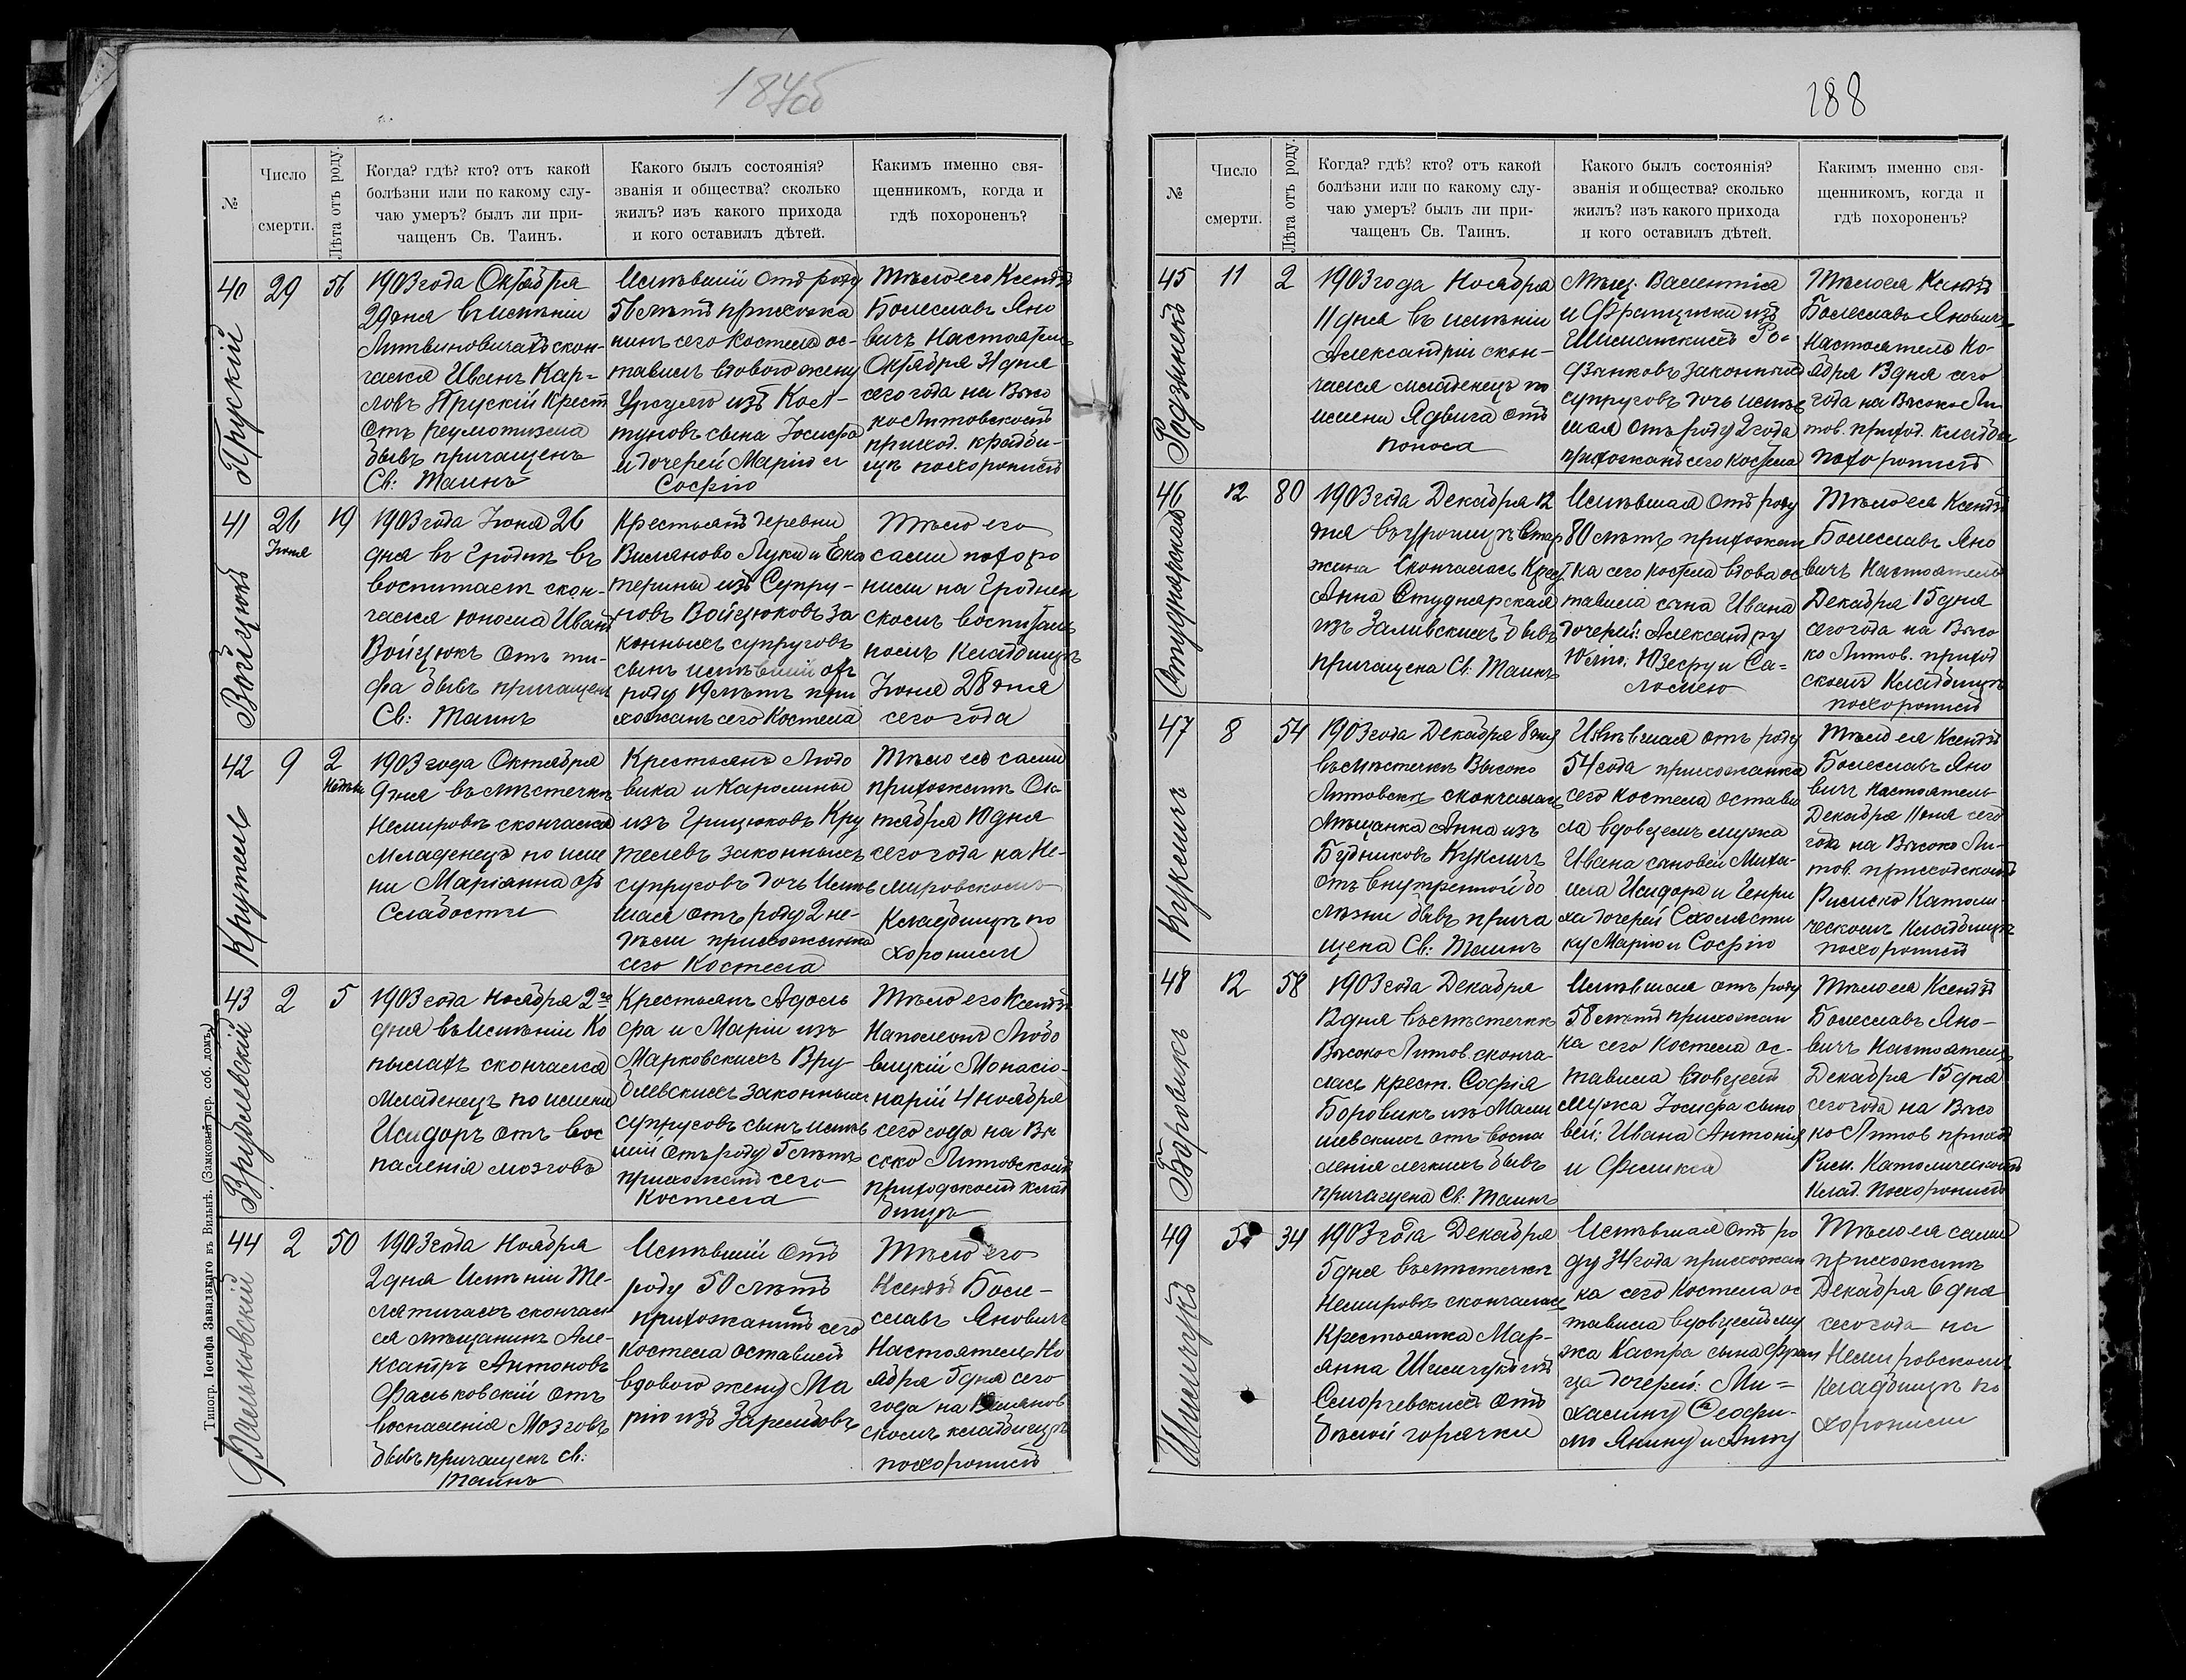 187об
№
Число
смерти.
Лѣта отъ роду.
Когда? гдѣ? кто? отъ какой
болѣзни или по какому слу-
чаю умеръ? былъ ли при-
чащенъ Св. Таинъ.
Какого былъ состоянія?
званія и общества? сколько
жилъ? изъ какого прихода
и кого оставилъ дѣтей.
Какимъ именно свя-
щенникомъ, когда и
гдѣ похороненъ?
40
Прускій
29
56
1903 года Октября
29 дня въ имѣніи
Литвиновичахъ скон-
чался Иванъ Кар-
ловъ Прускій крест
отъ реуматизма
бывъ причащенъ
Св: Таинъ
Имѣвшій отъ роду
56 лѣтъ прихожа
нинъ сего костела ос-
тавилъ вдовою жену
Урсулю изъ
сына Іосифа
и дочерей Марію и
Софію
Тѣло его Ксендзъ
Болеславъ Яно
вичъ Настоятель
Октября 31 дня
сего года на Высо
ко Литовскомъ
приход. кладби-
щѣ похоронилъ
41
Войцюкъ
26
Іюня
19
1903 года Іюня 26
дня въ Гроднѣ въ
воспиталѣ скон-
чался юноша Иванъ
Войцюкъ отъ ти-
фа бывъ причащенъ
Св: Таинъ
Крестьянъ деревни
Виляново Луки и Ека
терины изъ Супру-
новъ Войцюковъ за
конныхъ супруговъ
сынъ имѣвшій отъ
роду 19 лѣтъ при
хожанъ сего Костела
Тѣло его
сами похоро
нили на Гроднен
скомъ воспиталь
номъ кладбищѣ
Іюня 28 дня
сего года
42
Крутель
9
2
Недѣли
1903 года Октября
9 дня въ мѣстечкѣ
Немировѣ скончался
младенецъ по име
ни Маріанна отъ
слабости
Крестьянъ Людо
вика и Каролины
изъ Грицюковъ Кру
телевъ законныхъ
супруговъ дочь имѣв
шая отъ роду 2 не-
дѣли прихожанка
сего Костела
Тѣло ее сами
прихожане Ок
тября 10 дня
сего года на Не-
мировскомъ
кладбищѣ по
хоронили
43
Врублевскій
2
5
1903 года Ноября 2го
дня въ имѣніи Ко
пылахъ скончался
младенецъ по имени
Исидоръ отъ вос
паленія мозговъ
Крестьянъ Адоль
фа и Маріи изъ
Марковскихъ Вру
блевскихъ законныхъ
супруговъ сынъ имѣв
шій отъ роду 5 лѣтъ
прихожанъ сего
Костела
Тѣло его Ксендзъ
Наполеонъ Любо
вицкій Мансіо-
нарій 4 ноября
сего года на Вы
соко Литовскомъ
приходскомъ клад
бищѣ
44
Фальковскій
2
50
1903 года Ноября
2 дня имѣніи Те-
лятичахъ скончал
ся мѣщанинъ Але-
ксандръ Антоновъ
Фальковскій отъ
воспаленія мозговъ
бывъ причащенъ Св:
Таинъ
Имѣвшій отъ
роду 50 лѣтъ
прихожанинъ сего
костела оставилъ
вдовою жену Ма
рію изъ Зарембовъ
Тѣло его
Ксендзъ Боле-
славъ Яновичъ
Настоятель Но
ября 5 дня сего
года на Вилянов
скомъ кладбищѣ
похоронилъ
Типогр. Іосифа Завадзкаго въ Вильнѣ. (Замковый пер. соб. домъ)
188
№
Число
смерти.
Лѣта отъ роду.
Когда? гдѣ? кто? отъ какой
болѣзни или по какому слу-
чаю умеръ? былъ ли при-
чащенъ Св. Таинъ.
Какого былъ состоянія?
званія и общества? сколько
жилъ? изъ какого прихода
и кого оставилъ дѣтей.
Какимъ именно свя-
щенникомъ, когда и
гдѣ похороненъ?
45
Родзынекъ
11
2
1903 года Ноября
11 дня въ имѣніи
Александріи скон-
чался младенецъ по
имени Ядвига отъ
поноса
Мѣщ. Валентія
и Францишки изъ
Шиманскихъ Ро-
дзынковъ законныхъ
супруговъ дочь имѣв
шая отъ роду 2 года
прихожанъ сего костела
Тѣло ея Ксендзъ
Болеславъ Яновичъ
Настоятель Но-
ября 13 дня сего
года на Высоко Ли
тов. приход. кладби
похоронилъ
46
Студнярская
12
80
1903 года Декабря 12
дня въ урочищѣ Стар
жина скончалась Крест
Анна Студнярская
изъ Заливскихъ бывъ
причащена Св: Таинъ
Имѣвшая отъ роду
80 лѣтъ прихожан
ка сего костела вдова ос
тавила сына Ивана
дочерей: Александру
Юлію, Юзефу и Са-
ломею
Тѣло ея Ксендзъ
Болеславъ Яно
вичъ Настоятель
Декабря 15 дня
сего года на Высо
ко Литов. приход
скомъ кладбищѣ
похоронилъ
47
Кукличъ
8
54
1903 года Декабря 8 дня
въ мѣстечкѣ Высоко
Литовскѣ скончалась
мѣщанка Анна изъ
Будниковъ Кукличъ
отъ внутренной бо
лѣзни бывъ прича
щена Св: Таинъ
Имѣвшая отъ роду
54 года прихожанка
сего костела остави
ла вдовцемъ мужа
Ивана сыновей Миха-
ила Исидора и Генри
ха дочерей Схоласти
ку Марію и Софію
Тѣло ея Ксендзъ
Болеславъ Яно
вичъ Настоятель
Декабря 11 дня сего
года на Высоко Ли-
тов. приходскомъ
Римско Католи
ческомъ кладбищѣ
похоронилъ
48
Боровикъ
12
58
1903 года Декабря
12 дня въ мѣстечкѣ
Высоко Литов. сконча-
лась крест. Софія
Боровикъ изъ Мали
шевскихъ отъ воспа
ленія легкихъ бывъ
причащена Св: Таинъ
Имѣвшая отъ роду
58 лѣтъ прихожан
ка сего костела ос-
тавила вдовцемъ
мужа Іосифа сыно
вей: Ивана Антонія
и Феликса
Тѣло ея Ксендзъ
Болеславъ Яно-
вичъ Настоятель
Декабря 15 дня
сего года на Высо
ко Литов приход
Рим. Католическомъ
Клад. похоронилъ
49
Шимчукъ
5
34
1903 года Декабря
5 дня въ мѣстечкѣ
Немировѣ скончалась
Крестьянка Мар-
анна Шимчукъ изъ
отъ
бѣлой горячки
Имѣвшая отъ ро
ду 34 года прихожан
ка сего Костела ос
тавила вдовцемъ му
жа Каспра сына Фран
ца дочерей: Ми-
халину Теофи-
лю Янину и Анну
Тѣло ея сами
прихожане
Декабря 6 дня
сего года на
Немировскомъ
кладбищѣ по
хоронили